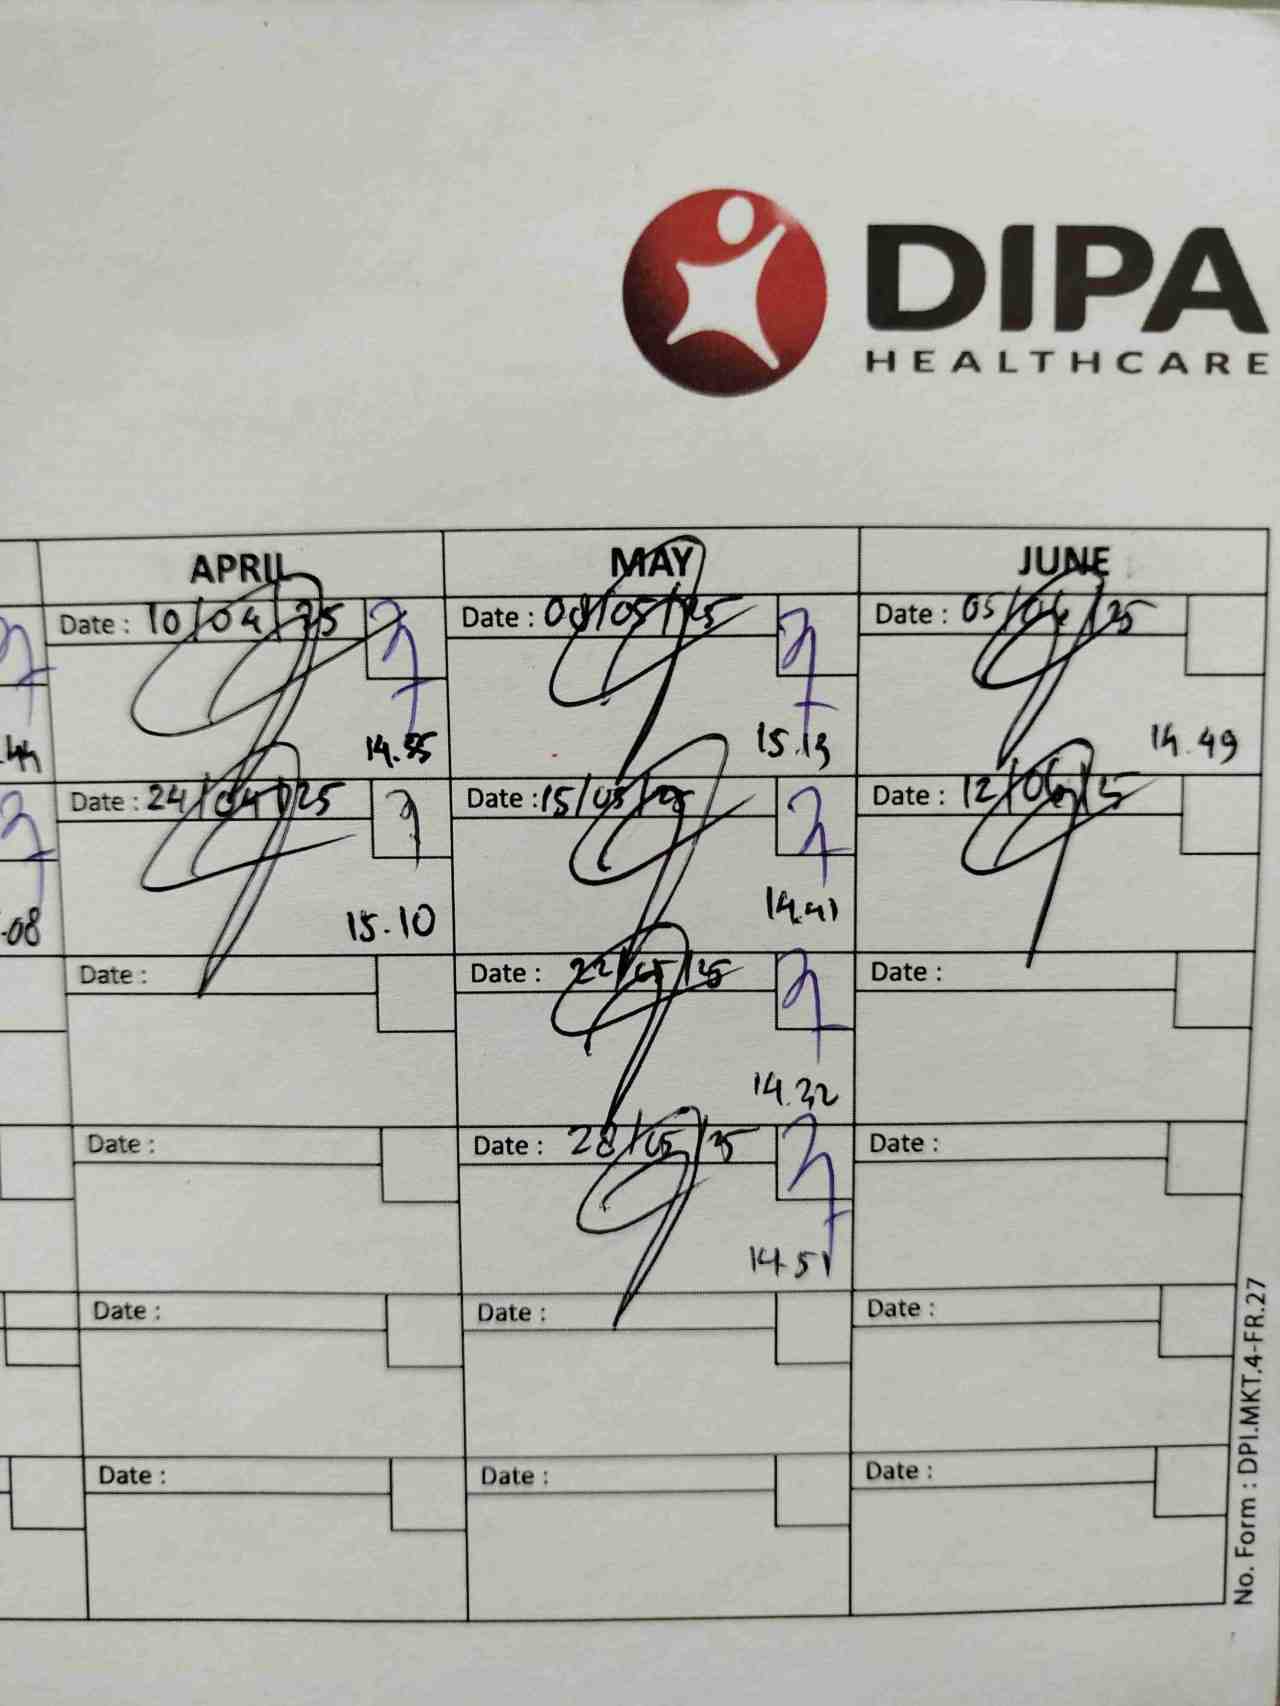 DIPA
HEALTHCARE
APRIL MAY JUNE
Date : 10/04/25 Date : 08/05/25 Date : 05/06/25
.44 14.35 15.13 14.49
Date : 24/04/25 Date : 15/05/25 Date : 12/06/25
.08 15.10 14.41
Date : Date : 22/05/25 Date :
14.32
Date : Date : 28/05/25 Date :
14.51
Date : Date : Date :
Date : Date : Date :
No. Form : DPI.MKT.4-FR.27